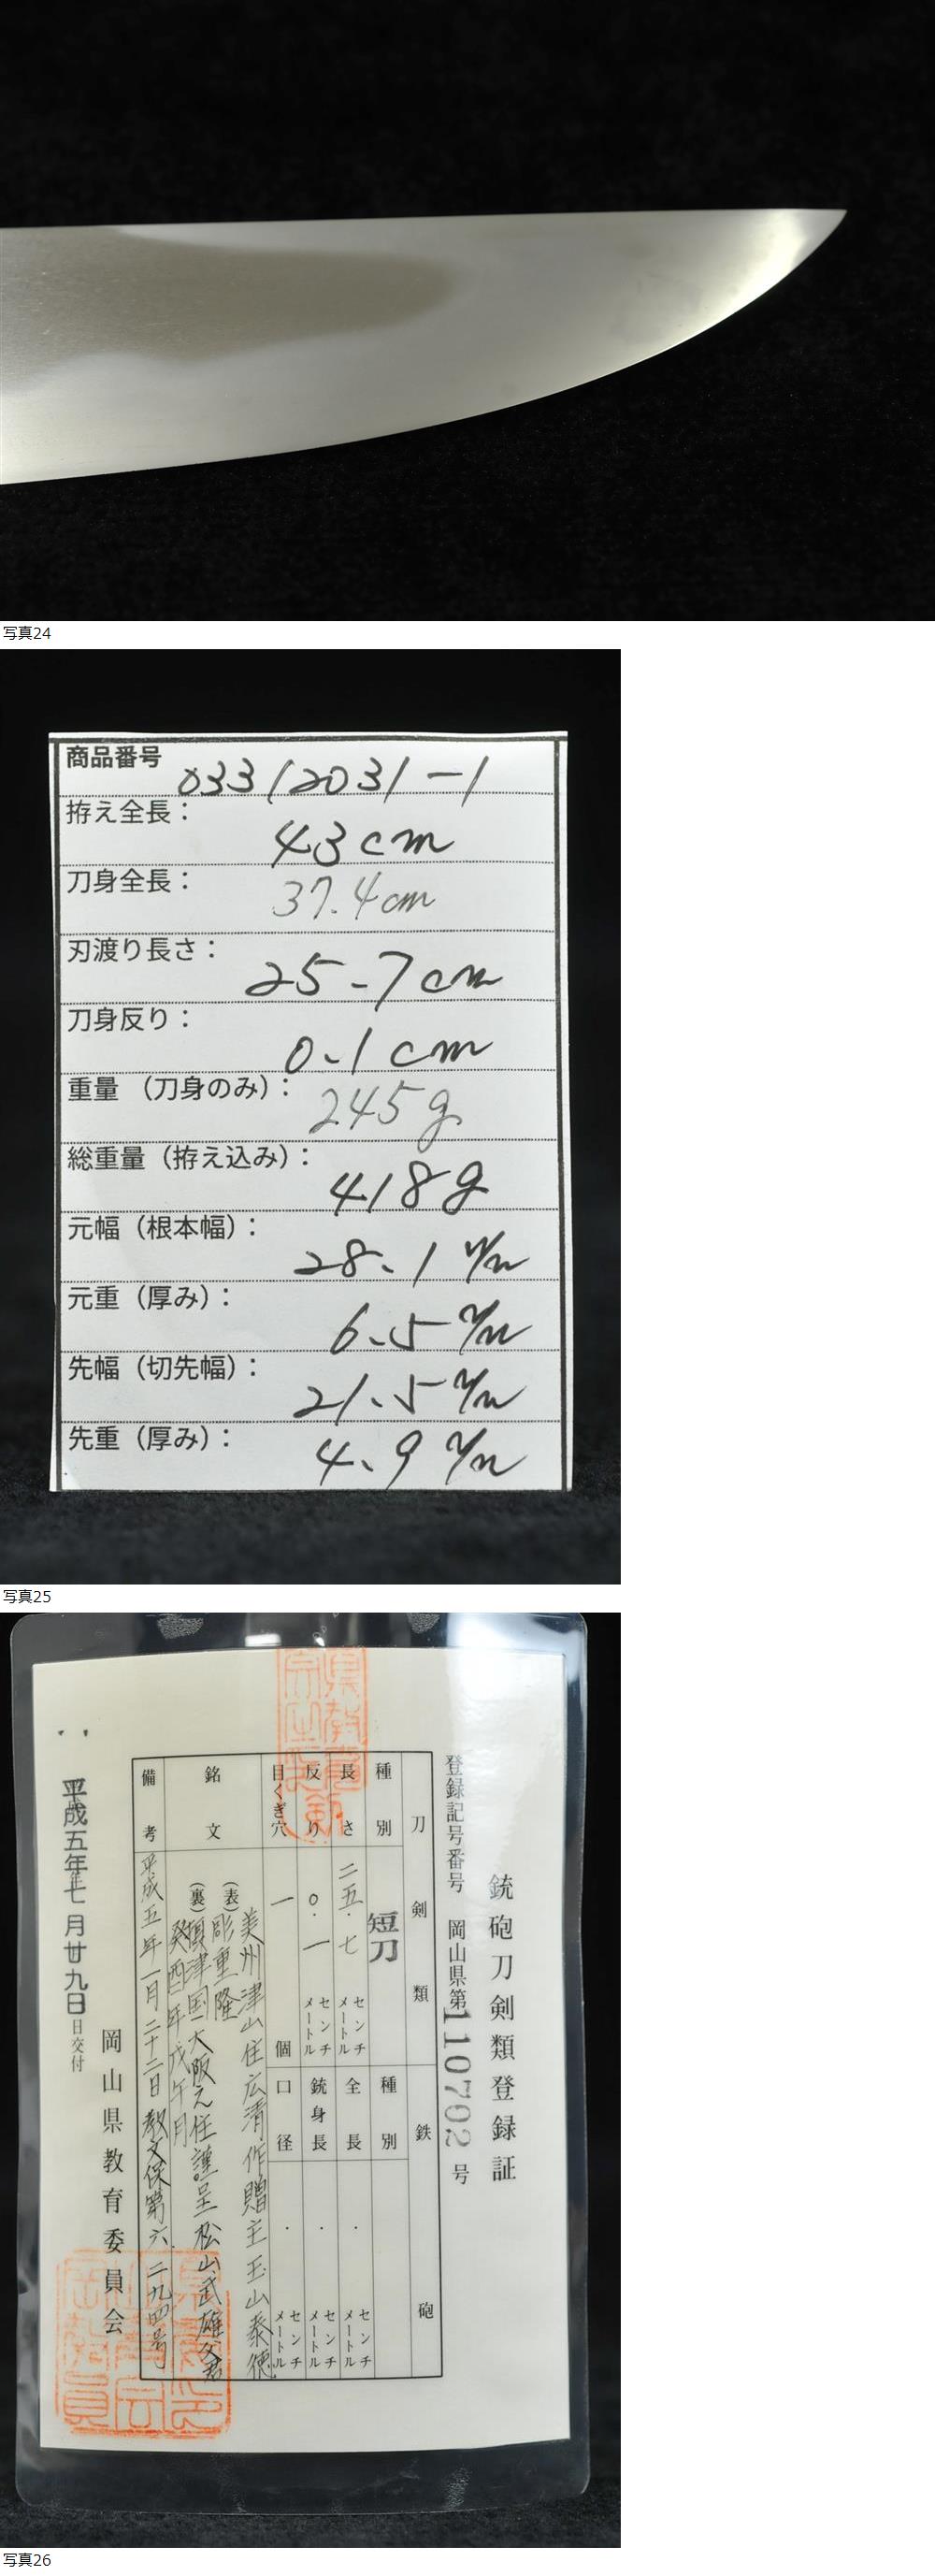 写真24
商品番号
03312031-1
拵え全長：
43cm
刀身全長：
37.4cm
刃渡り長さ：
25.7cm
刀身反り：
0.1cm
重量（刀身のみ）：
245g
総重量（拵え込み）：
418g
元幅（根本幅）：
28.1m/m
元重（厚み）：
6.5m/m
先幅（切先幅）：
21.5m/m
先重（厚み）：
4.9m/m
写真25
銃砲刀剣類登録証
登録記号番号 岡山県第110702号
刀剣類
鉄砲
種別
短刀
種別
長さ
二五.七センチメートル
全長
.センチメートル
反り
〇.一センチメートル
銃身長
.センチメートル
目くぎ穴
一個
口径
.センチメートル
銘文
(表)
美州津山住広清作贈主玉山泰徳
彫重隆
(裏)
津国大阪之住謹呈松山武雄父君
癸酉年戊午月
備考
平成五年一月二十二日教文保第六二九四号
岡山県教育委員会
平成五年七月廿九日日交付
写真26